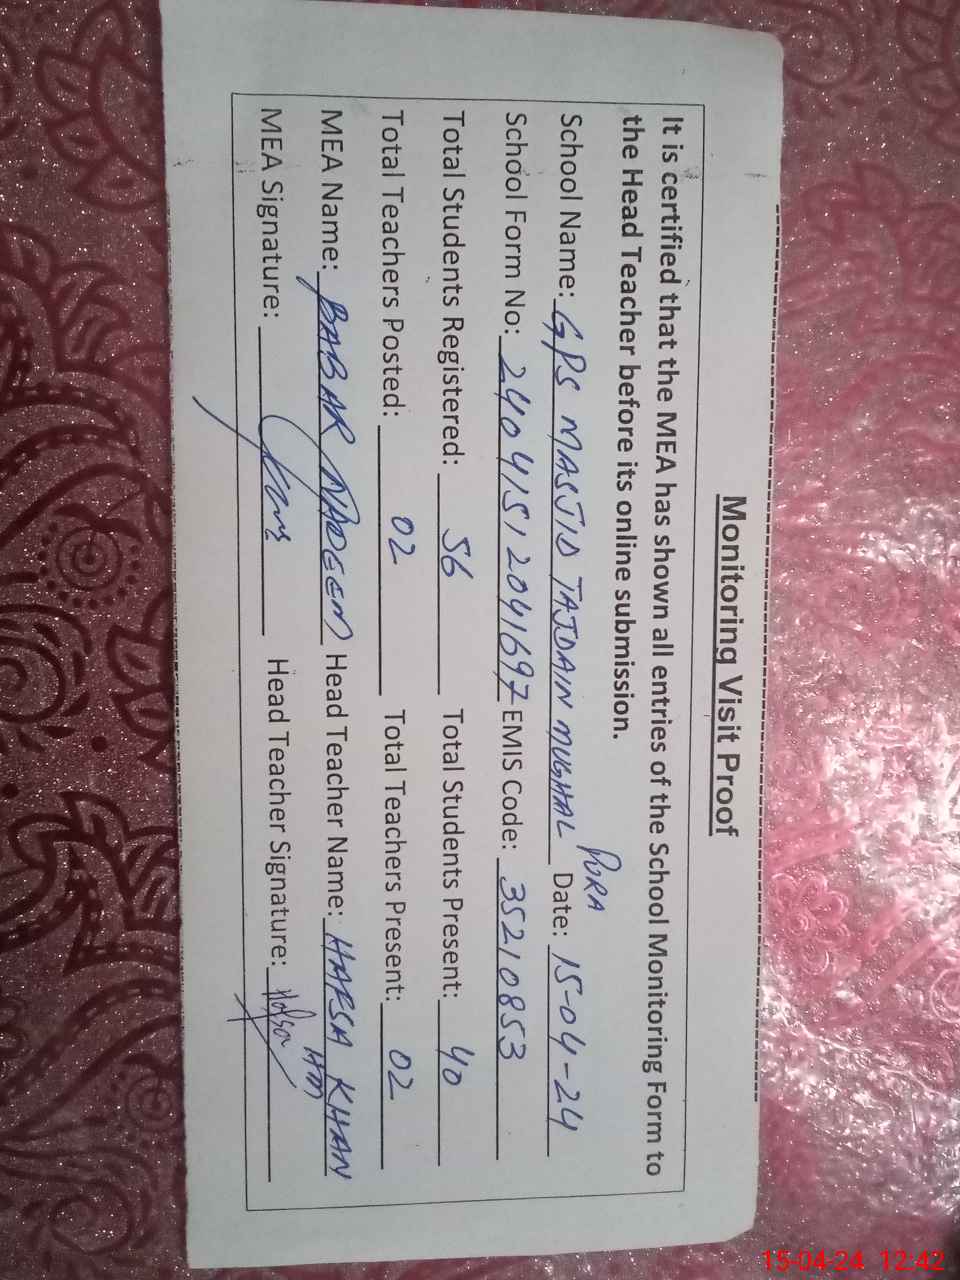 Monitoring Visit Proof
It is certified that the MEA has shown all entries of the School Monitoring Form to
the Head Teacher before its online submission.
School Name: GPS MASJID TAJDAIN MUGHAL PURA Date: 15-04-24
School Form No: 24041512041697 EMIS Code: 35210853
Total Students Registered: 56 Total Students Present: 40
Total Teachers Posted: 02 Total Teachers Present: 02
MEA Name: BABAR NADEEM Head Teacher Name: HAFSA KHAN
HM
MEA Signature: Head Teacher Signature: Hafsa
15-04-24 12:42